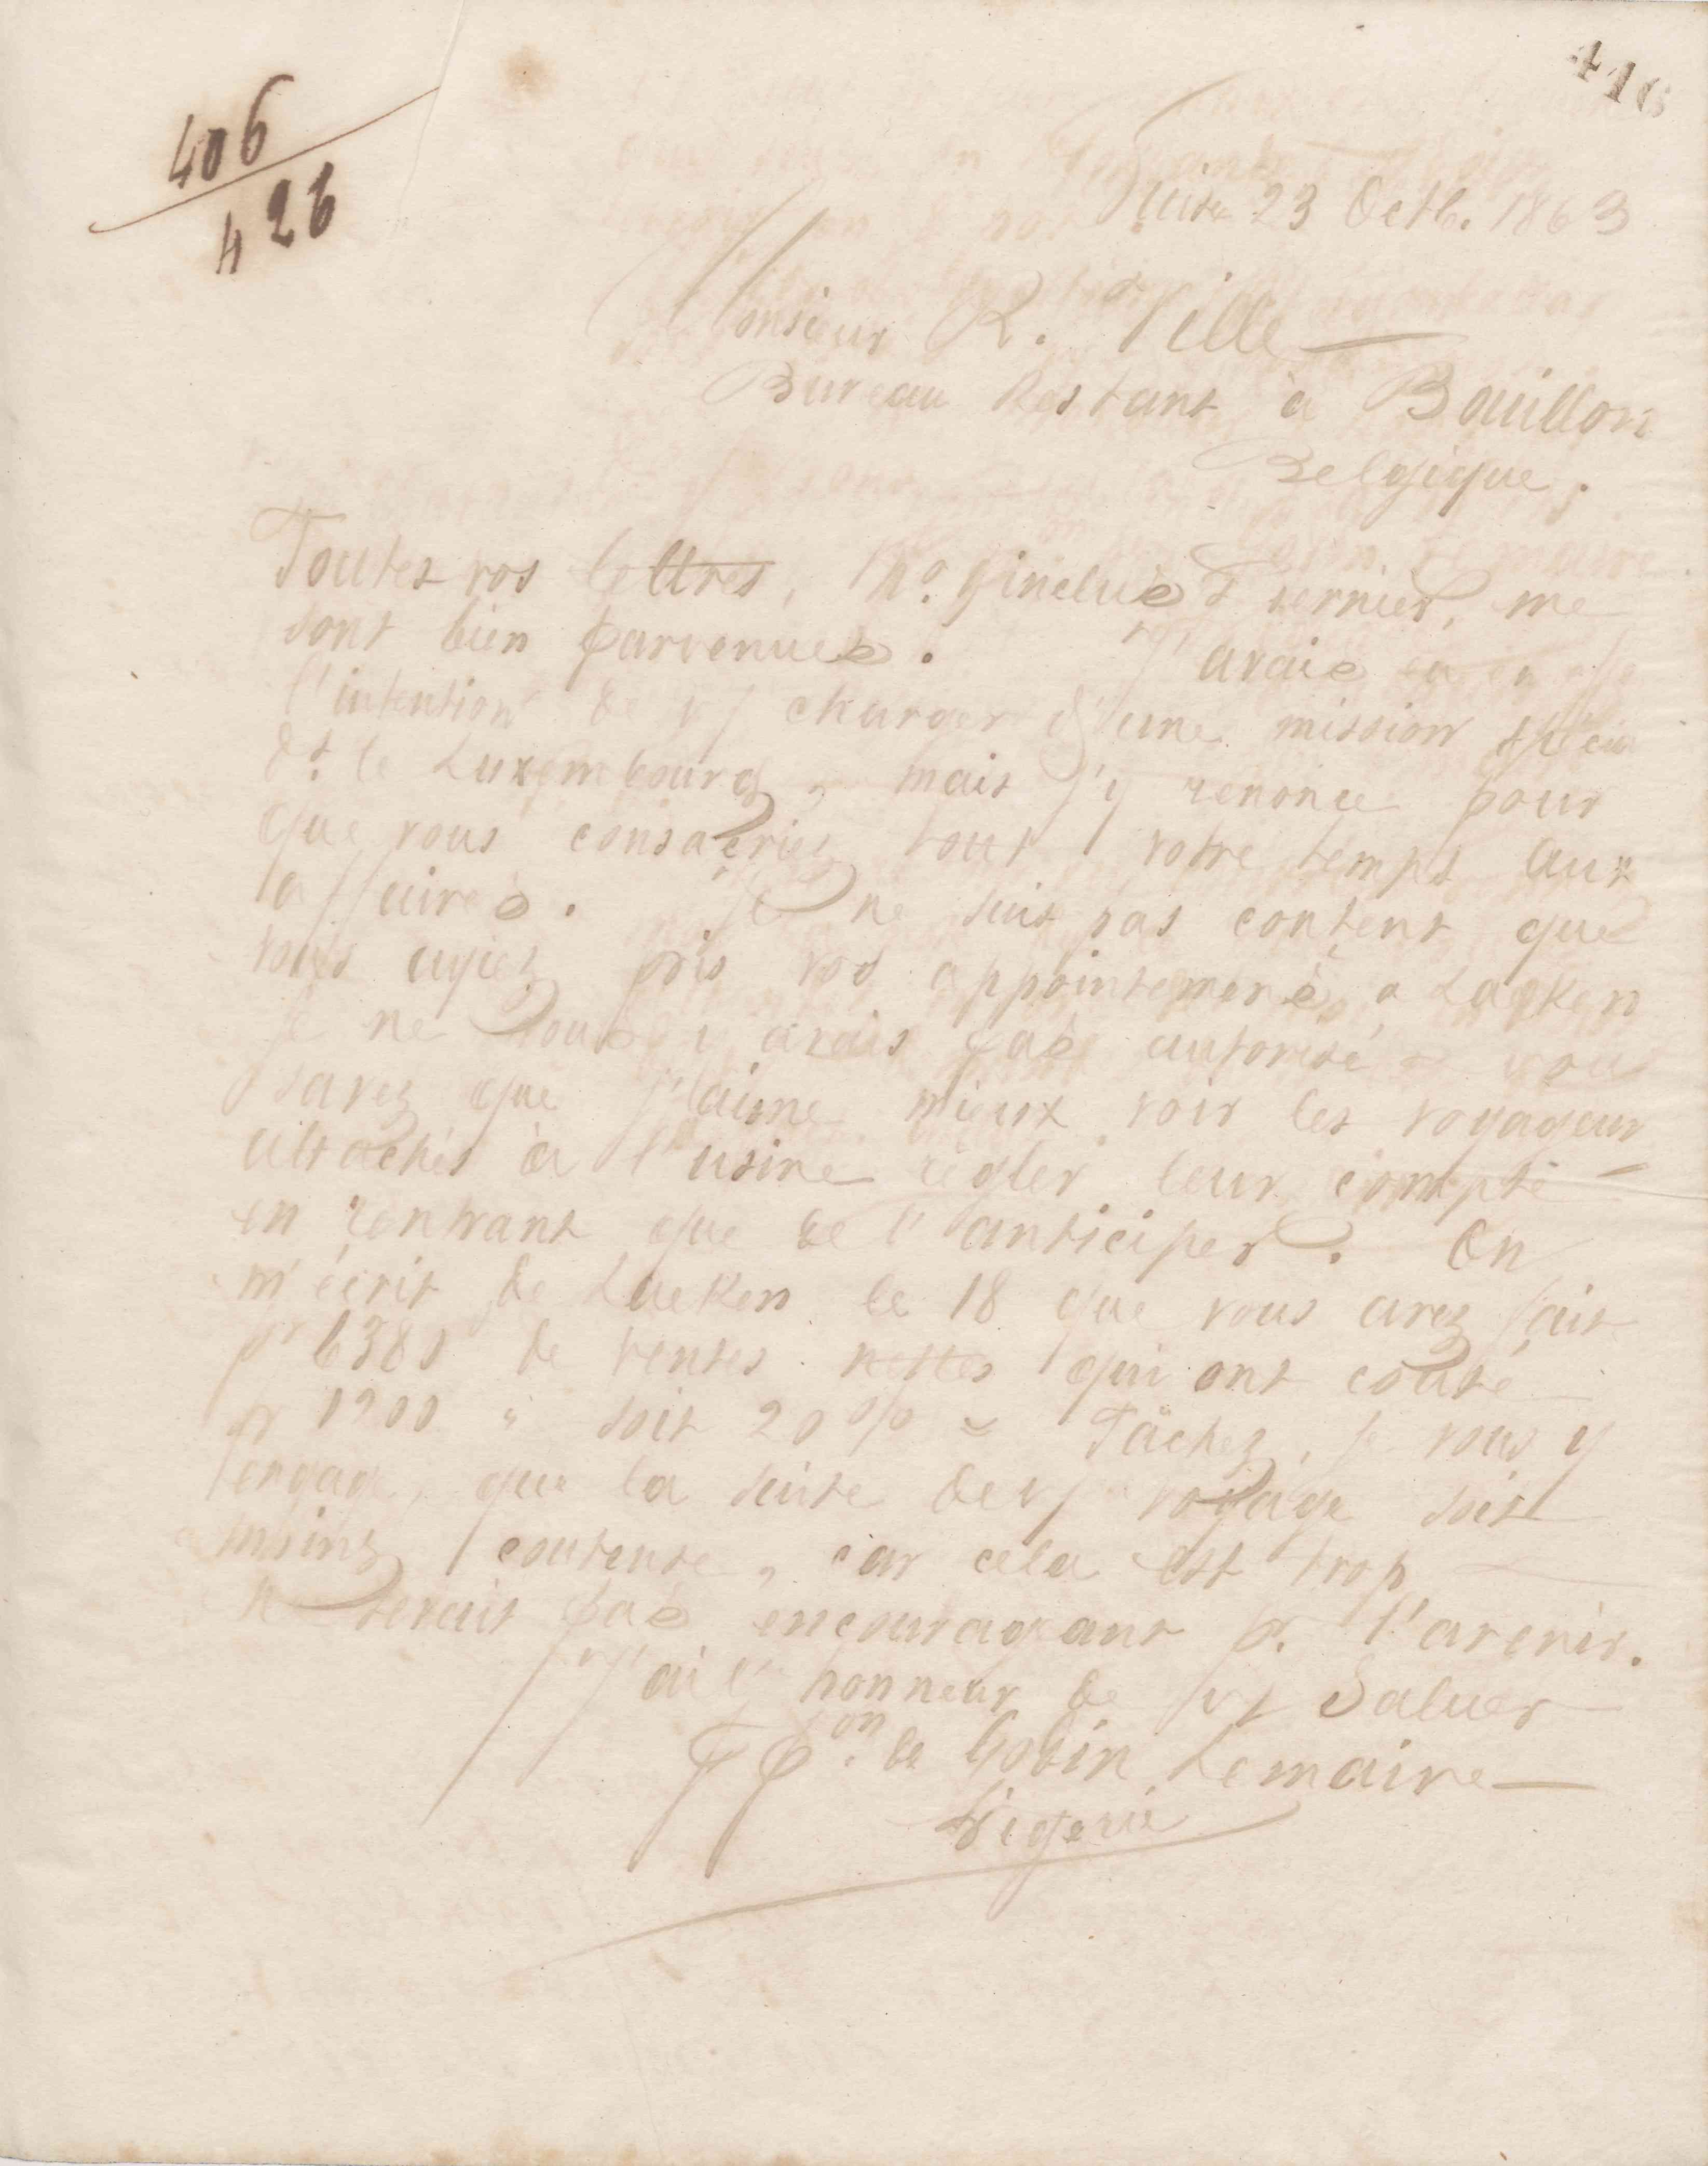 416
406
426
Guise 23 Octb. 1863
Monsieur R. Ville
Bureau Restant à Bouillon
Belgique.
Toutes vos lettres, No. 9 incluse dernier, me
sont bien parvenues. J'avais eu en
l'intention de v/ charger d'une mission
ds. le Luxembourg, mais j'y renonce pour
que vous consacriez tout votre temps aux
affaires. Je ne suis pas content que
vous ayiez pris vos appointements à Laeken
je ne vous y avais pas autorisé - vous
savez que j'aime mieux voir les voyageurs
attachés à l'usine régler leur compte
en rentrant que de l'anticiper. On
m'écrit de Laeken le 18 que vous avez fait
fr 6380 de ventes nettes qui ont coûté
fr 1200 " soit 20 % - Tâchez, je vous y
engage, que la suite de v/ voyage soit
moins couteuse, car cela est trop
serait pas encourageant pr. l'avenir.
J'ai l'honneur de v/ Saluer
PPon. de Godin Lemaire
Vigerie